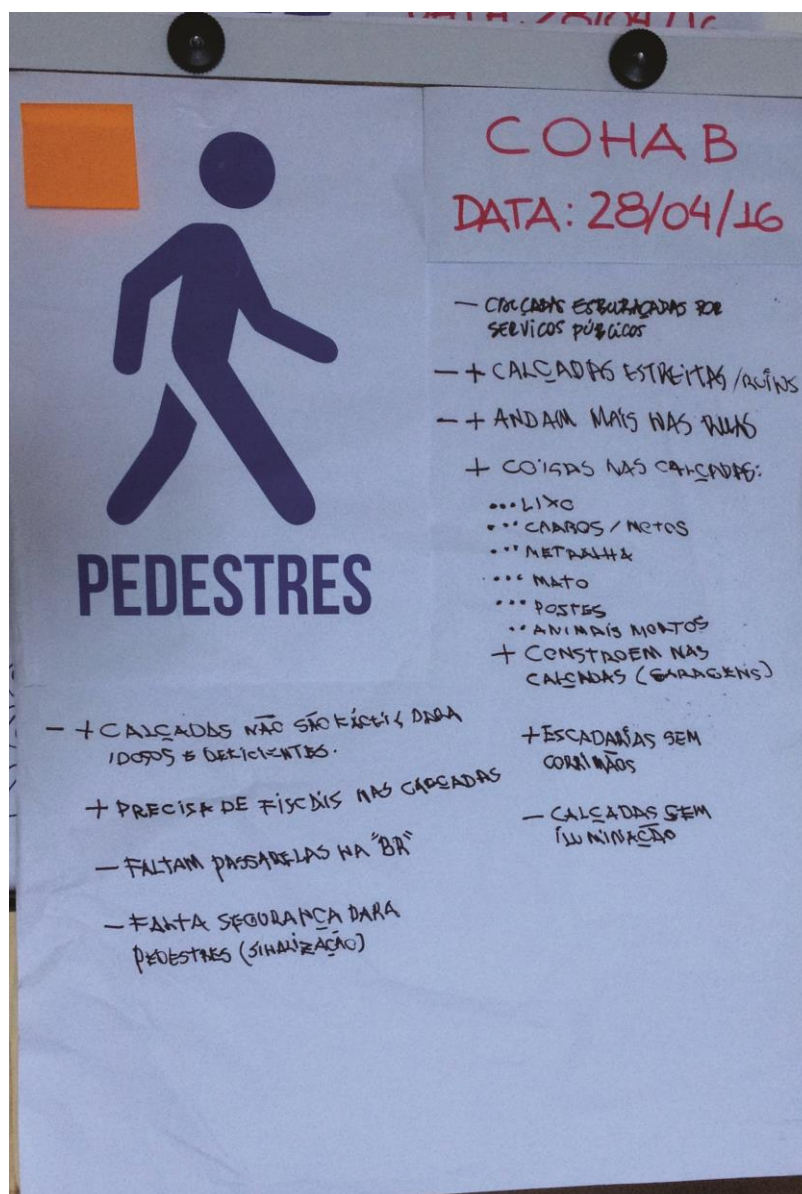 DATA: 28/04/16
COHAB
DATA: 28/04/16
PEDESTRES
— CALÇADAS ESBURAÇADAS POR
SERVIÇOS PÚBLICOS
— + CALÇADAS ESTREITAS / RUÍNS
— + ANDAM MAIS NAS RUAS
+ COISAS NAS CALÇADAS:
... LIXO
... CARROS / MOTOS
... METRALHA
... MATO
... POSTES
.. ANIMAIS MORTOS
+ CONSTROEM NAS
CALÇADAS (GARAGENS)
+ ESCADARIAS SEM
CORRIMÃOS
— CALÇADAS SEM
ILUMINAÇÃO
— + CALÇADAS NÃO SÃO FÁCEIS PARA
IDOSOS E DEFICIENTES.
+ PRECISA DE FISCAIS NAS CALÇADAS
— FALTAM PASSARELAS NA "BR"
— FALTA SEGURANÇA PARA
PEDESTRES (SINALIZAÇÃO)